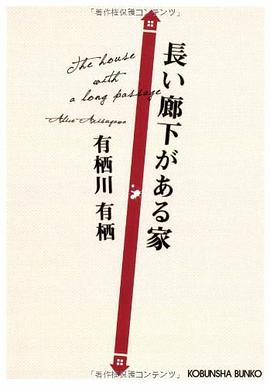 「著作権保護コンテンツ」
長い廊下がある家
The house
with
a long passage
Alice Arisugawa
有栖川 有栖
「著作権保護コンテンツ」
KOBUNSHA BUNKO